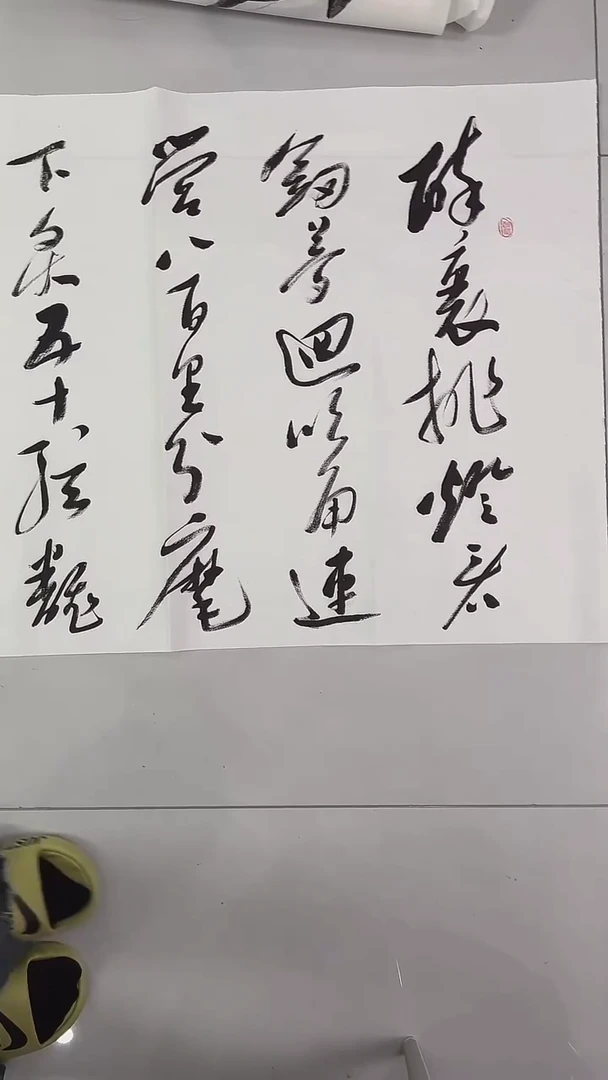 醉裏挑燈看
劍夢迴吹角連
營八百里分麾
下炙五十絃飜